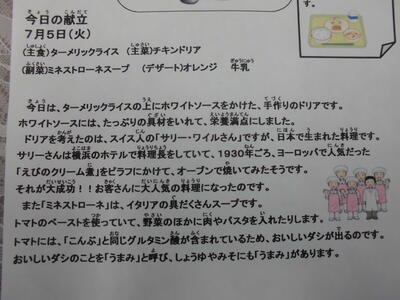 今日の献立
7月5日(火)
(主食)ターメリックライス (主菜)チキンドリア
(副菜)ミネストローネスープ (デザート)オレンジ 牛乳
です。
今日は、ターメリックライスの上にホワイトソースをかけた、手作りのドリアです。
ホワイトソースには、たっぷりの具材をいれて、栄養満点にしました。
ドリアを考えたのは、スイス人の「サリー・ワイルさん」ですが、日本で生まれた料理です。
サリーさんは横浜のホテルで料理長をしていて、1930年ごろ、ヨーロッパで人気だった
「えびのクリーム煮」をピラフにかけて、オーブンで焼いてみたそうです。
それが大成功!!お客さんに大人気の料理になったのです。
また「ミネストローネ」は、イタリアの具だくさんスープです。
トマトのペーストを使っていて、野菜のほかに肉やパスタを入れたりします。
トマトには、「こんぶ」と同じグルタミン酸が含まれているため、おいしいダシが出るのです。
おいしいダシのことを「うまみ」と呼び、しょうゆやみそにも「うまみ」があります。